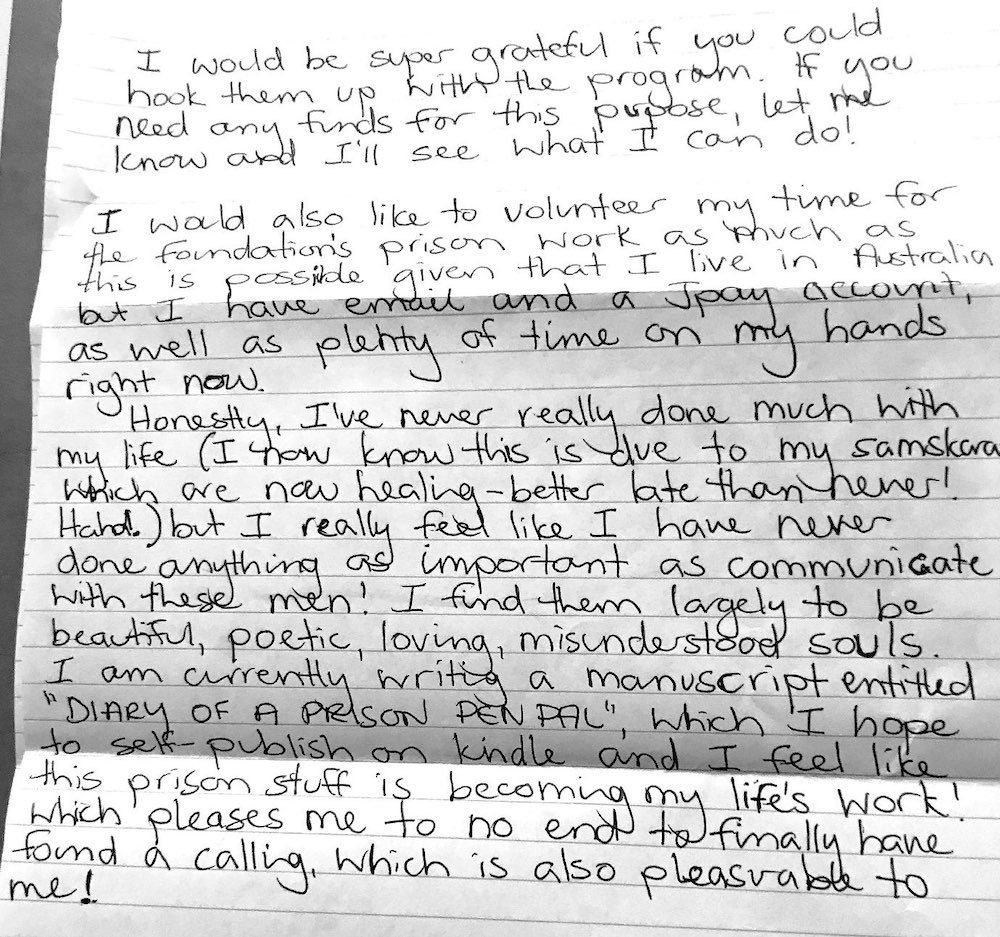 I would be super grateful if you could
hook them up with the program. If you
need any funds for this pupose, let me
know and I'll see what I can do!
I would also like to volunteer my time for
the foundation's prison work as much as
this is possible given that I live in Australia
but I have email and a Jpay account,
as well as plenty of time on my hands
right now.
Honestly, I've never really done much with
my life (I now know this is due to my samskara
which are now healing - better late than never!
Haha!) but I really feel like I have never
done anything as important as communicate
with these men! I find them largely to be
beautiful, poetic, loving, misunderstood souls.
I am currently writing a manuscript entitled
"DIARY OF A PRISON PEN PAL", which I hope
to self-publish on kindle and I feel like
this prison stuff is becoming my life's work!
which pleases me to no end to finally have
found a calling, which is also pleasurable to
me!